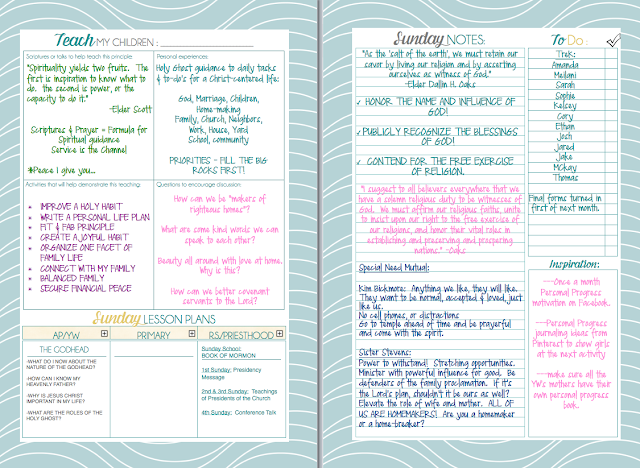 Teach MY CHILDREN :
Scriptures or talks to help teach this principle:
"Spirituality yields two fruits. The
first is inspiration to know what to
do. the second is power, or the
capacity to do it."
-Elder Scott
Scriptures & Prayer = Formula for
Spiritual guidance
Service is the Channel
*Peace I give you....
Personal experiences:
Holy Ghost guidance to daily tasks
& to-do's for a Christ-centered life:
God, Marriage, Children,
Home-making
Family, Church, Neighbors,
Work, House, Yard
School, community
PRIORITIES - FILL THE BIG
ROCKS FIRST!
Activities that will help demonstrate the teaching:
* IMPROVE A HOLY HABIT
* WRITE A PERSONAL LIFE PLAN
* FIT & FAB PRINCIPLE
* CREATE A JOYFUL HABIT
* ORGANIZE ONE FACET OF
FAMILY LIFE
* CONNECT WITH MY FAMILY
* BALANCED FAMILY
* SECURE FINANCIAL PEACE
Questions to encourage discussion:
How can we be "makers of
righteous homes"?
What are some kind words we can
speak to each other?
Beauty all around with love at home.
Why is this?
How can we better covenant
servants to the Lord?
Sunday LESSON PLANS
AP/YW
THE GODHEAD
-WHAT DO I NOW ABOUT THE
NATURE OF THE GODHEAD?
-HOW CAN I KNOW MY
HEAVENLY FATHER?
-WHY IS JESUS CHRIST
IMPORTANT IN MY LIFE?
-WHAT ARE THE ROLES OF THE
HOLY GHOST?
PRIMARY
RS/PRIESTHOOD
Sunday School:
BOOK OF MORMON
1st Sunday: Presidency
Message
2nd & 3rd Sunday: Teachings
of Presidents of the Church
4th Sunday: Conference Talk
Sunday NOTES:
"As the 'salt of the earth', we must retain our
savor by living our religion and by asserting
ourselves as witness of God."
-Elder Dallin H. Oaks
✓ HONOR THE NAME AND INFLUENCE OF
GOD!
✓ PUBLICLY RECOGNIZE THE BLESSINGS
OF GOD!
✓ CONTEND FOR THE FREE EXERCISE
OF RELIGION.
"I suggest to all believers everywhere that we
have a solemn religious duty to be witnesses of
God. We must affirm our religious faiths, unite
to insist upon our right to the free exercise of
our religions, and honor their vital roles in
establishing and preserving and prospering
nations." -Oaks
Special Need Mutual:
Kim Bickmore: Anything we like, they will like.
They want to be normal, accepted & loved, just
like us.
No cell phones, or distractions
Go to temple ahead of time and be prayerful
and come with the spirit.
Sister Stevens:
Power to withstand! Stretching opportunities.
Minister with powerful influence for good. Be
defenders of the family proclamation. If it's
the Lord's plan, shouldn't it be ours as well?
Elevate the role of wife and mother. ALL OF
US ARE HOMEMAKERS! Are you a homemaker
or a home-breaker?
To Do :
Trek:
Amanda
Meilani
Sarah
Sophie
Kelsey
Cory
Ethan
Josh
Jared
Jake
McKay
Thomas
Final forms turned in
first of next month.
Inspiration:
---Once a month
Personal Progress
motivation on Facebook.
---Personal Progress
journaling ideas from
Pinterest to show girls
at the next activity
---make sure all the
YW's mothers have their
own personal progress
book.